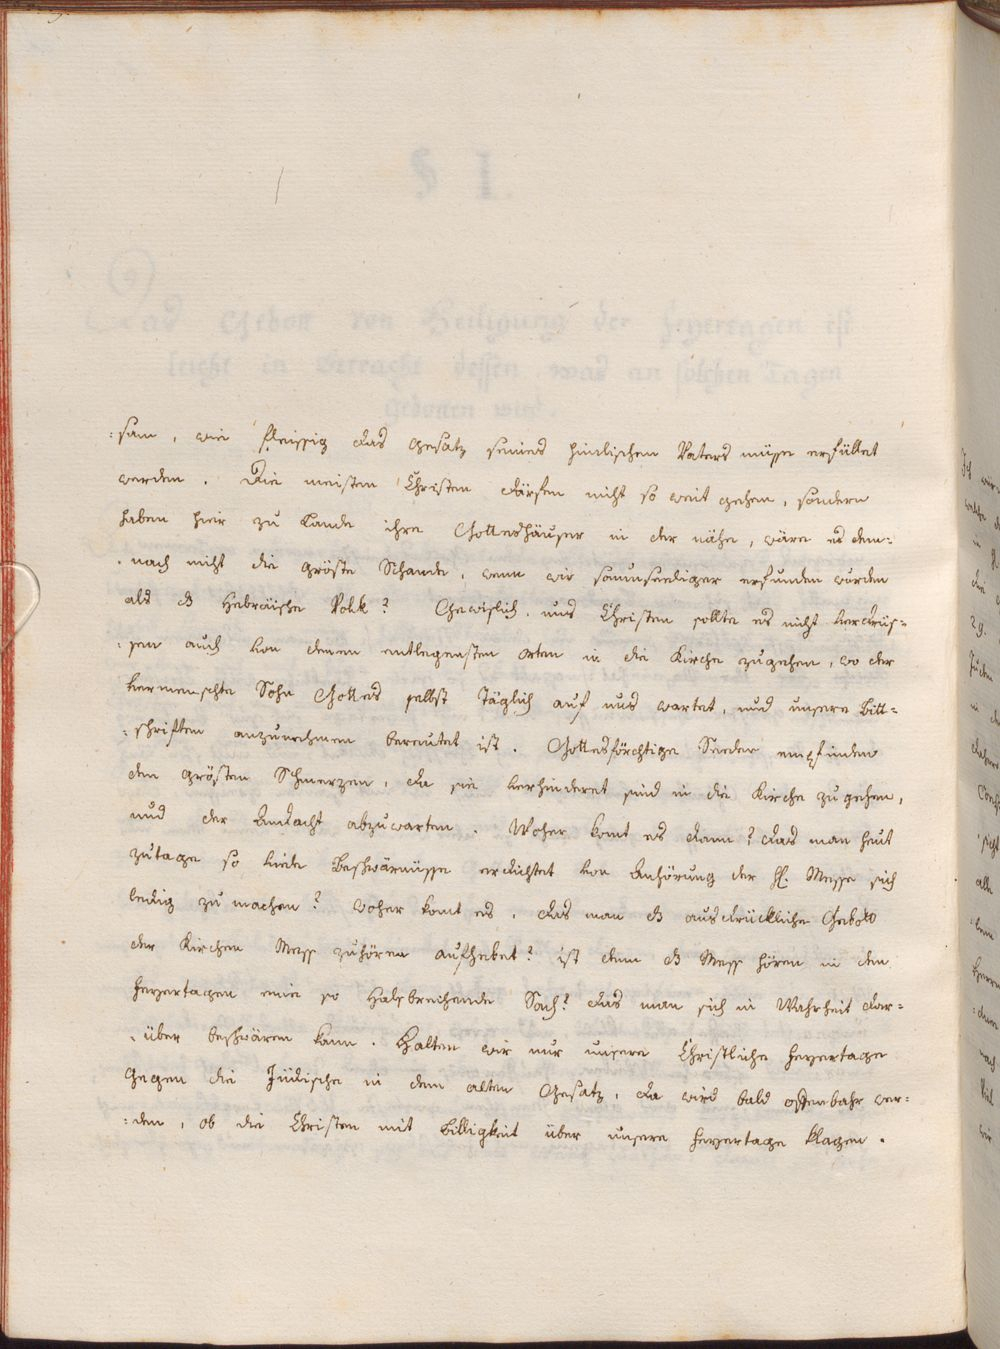 :sam, wie fleissig das Gesatz seines himlischen Vaters müsse erfüllet
werden. Die meisten Christen därfen nicht so weit gehen, sondern
haben hier zu Lande ihre Gotteshäuser in der nähe, wäre es dem:
:nach nicht die gröste Schande, wenn wir saumseeliger erfunden wurden
als das Hebräische Volk? Gewislich. uns Christen sollte es nicht verdrüs=
:sen auch von denen entlegensten orten in die Kirche zugehen, wo der
vermenschte Sohn Gottes selbst täglich auf uns wartet, und unsere Bitt=
:schriften anzunehmen bereutet ist. Gottesförchtige Seelen empfinden
den grösten Schmerzen, da sie verhinderet sind in die Kirche zugehen,
und der Andacht abzuwarten. Woher komt es dann? das man heut
zutage so viele Beschwärnüsse erdichtet von Anhörung der H. Messe sich
ledig zu machen? woher komt es, das man das ausdrückliche Gebott
der Kirchen Mess zuhören aufhebet? ist denn das Mess hören in den
feyertagen eine so Halsbrechende Sach? das man sich in Wahrheit dar=
:über beschwären kann. Halten wir nur unsere Christliche feyertage
gegen die Jüdische in dem alten Gesatz, da wird bald offenbahr wer=
:den, ob die Christen mit Billigkeit über unsere feyertage klagen.
§ I.
Das Gebott von Heiligung der feyertägen ist
leicht in Betracht dessen was an solchen Tagen
gebotten wird.